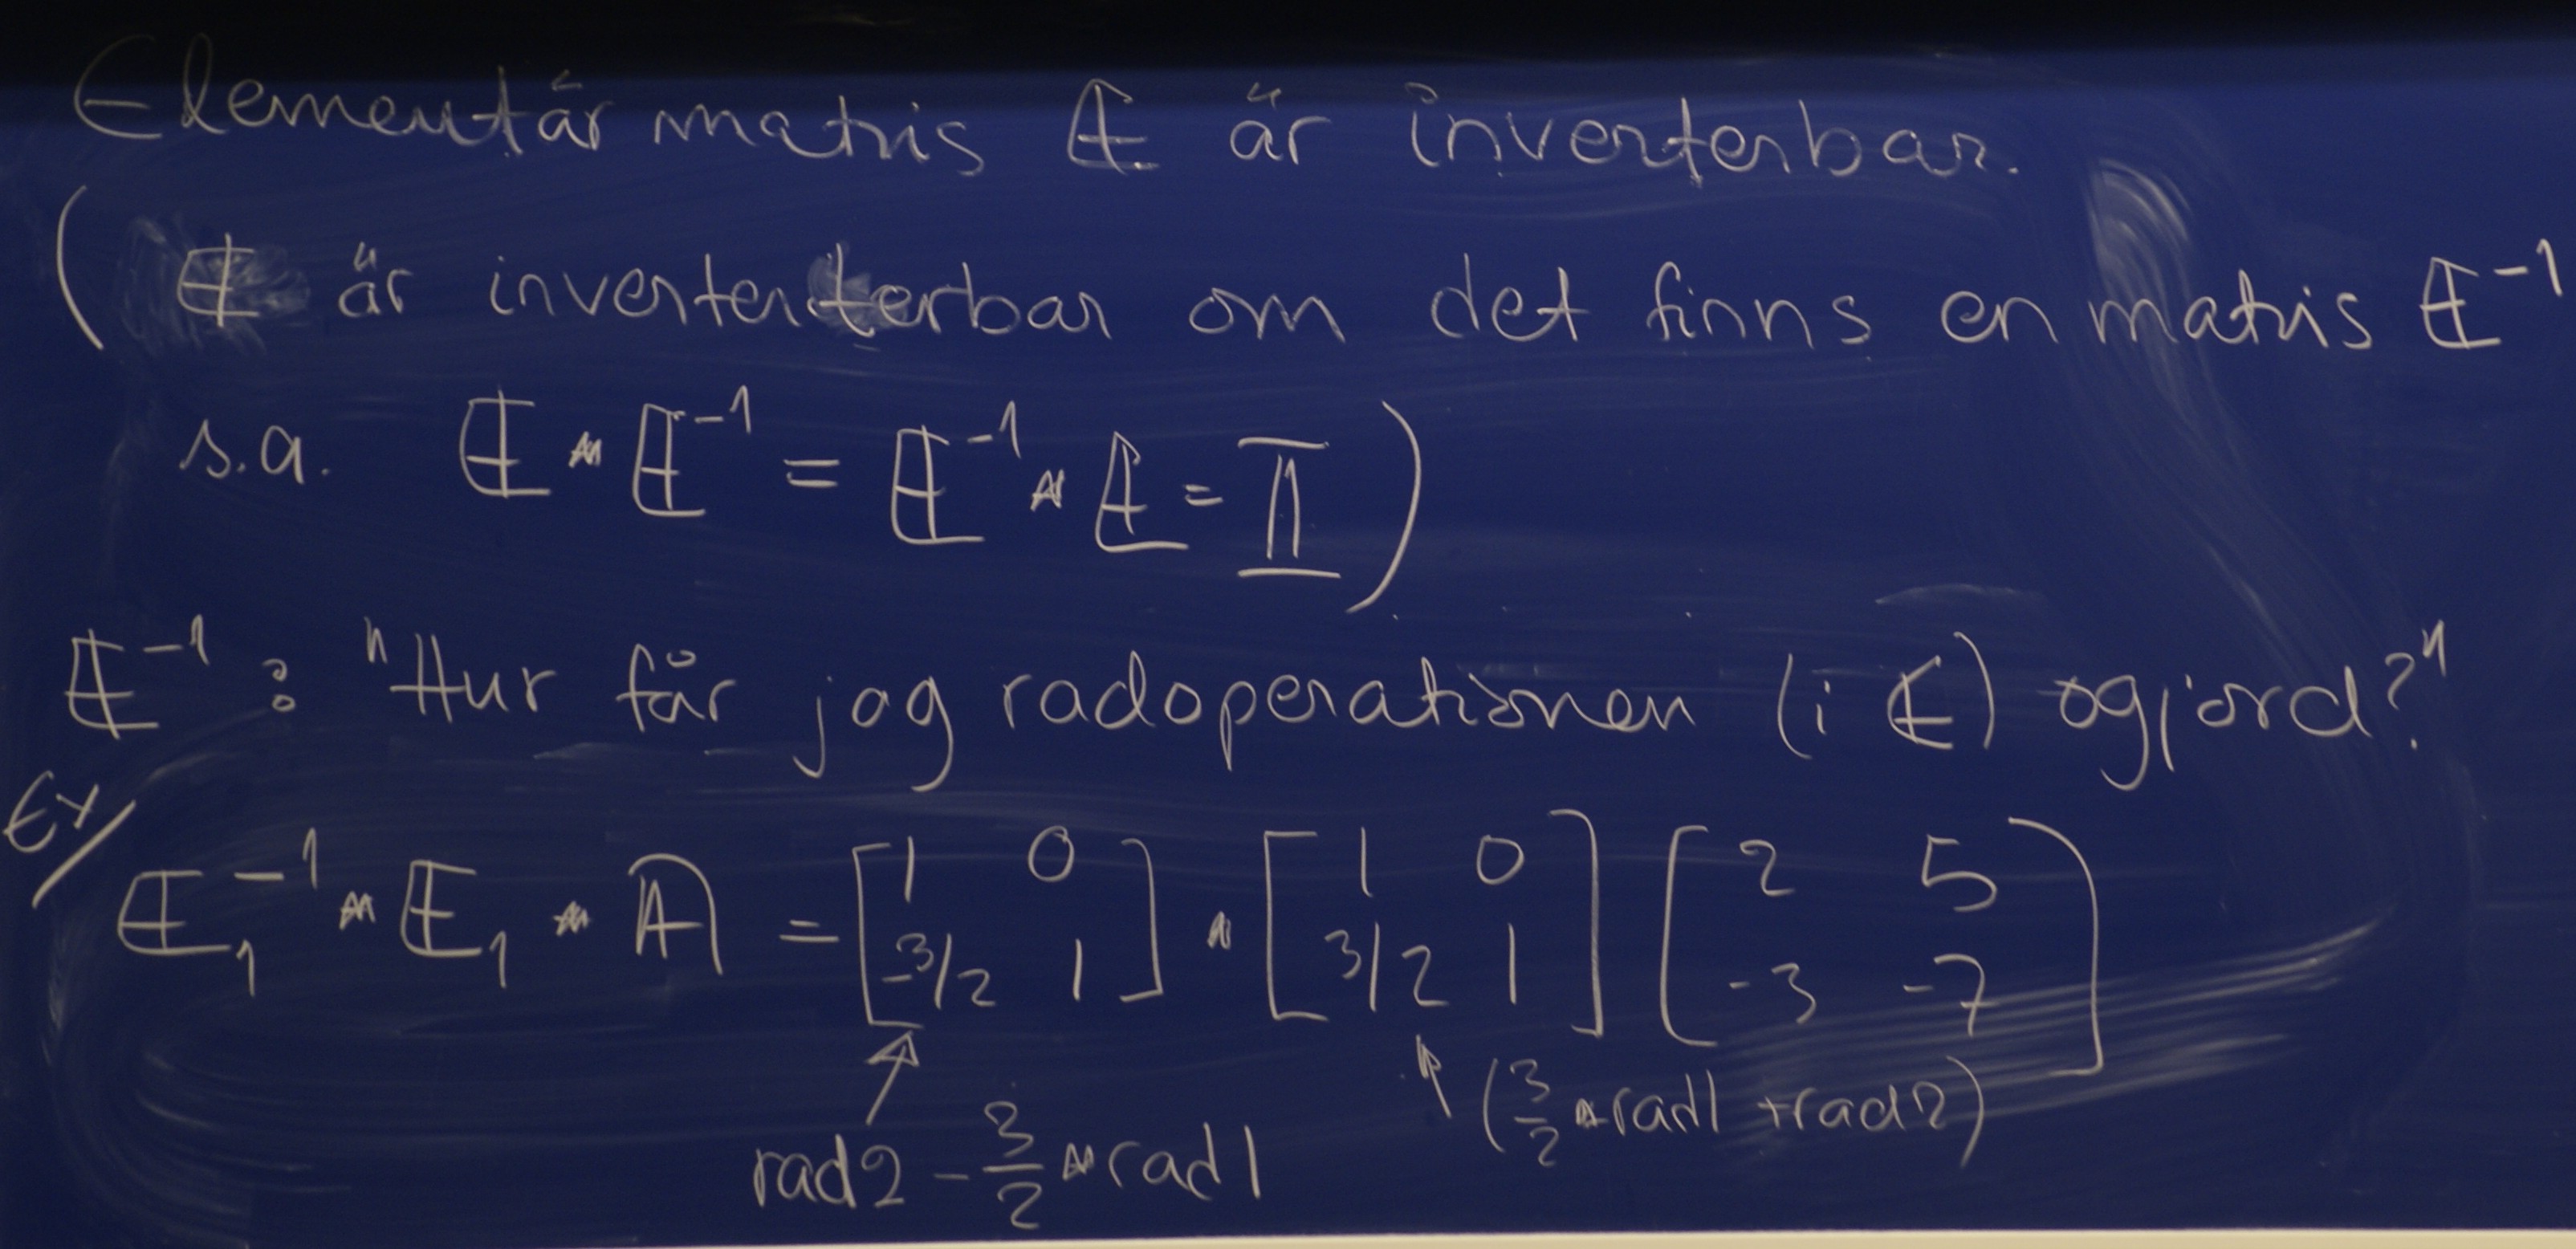 Elementär matris E är inverterbar.
( E är inverterterbar om det finns en matris E⁻¹
s.a. E · E⁻¹ = E⁻¹ · E = I )
E⁻¹ : "Hur får jag radoperationen (i E) ogjord?"
Ex/
E₁⁻¹ · E₁ · A = [1 0; -3/2 1] · [1 0; 3/2 1] [2 5; -3 -7]
(3/2 · rad1 + rad2)
rad2 - 3/2 · rad1